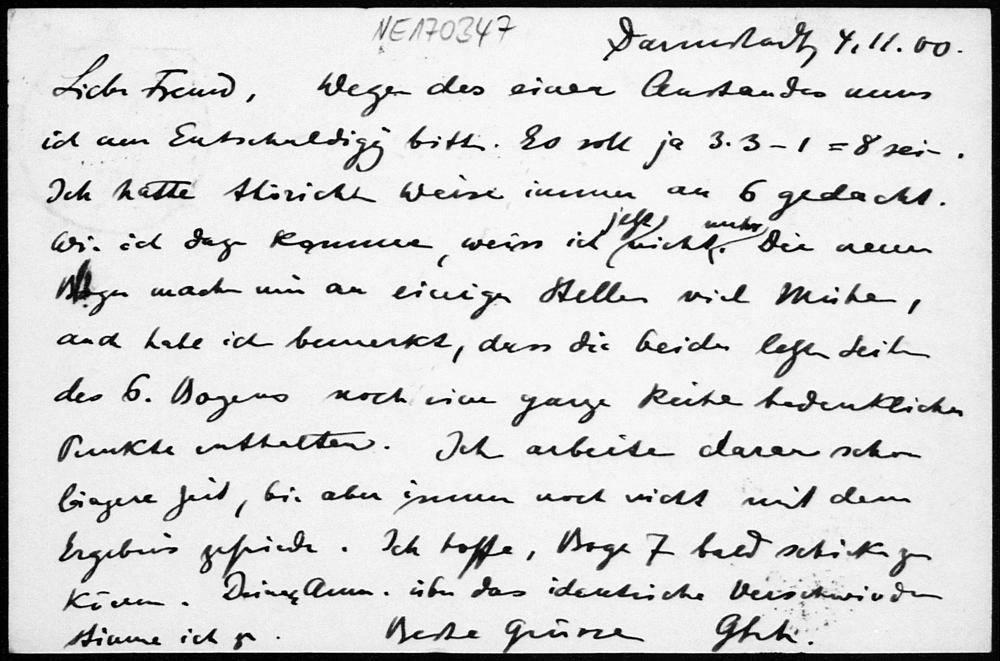 NE170347
Darmstadt, 4.11.00.
Lieber Freund, Wegen des einen Anstandes muss
ich um Entschuldigg bitten. Es soll ja 3.3 – 1 = 8 sein.
Ich hatte thörichter Weise immer an 6 gedacht.
Wie ich dazu komme, weiss ich jetzt nicht mehr. Die neuen
Bogen machen mir an einigen Stellen viel Mühen,
auch habe ich bemerkt, dass die beiden letzten Seiten
des 6. Bogens noch eine ganze Reihe bedenklicher
Punkte enthalten. Ich arbeite daran schon
längere Zeit, bin aber immer noch nicht mit dem
Ergebnis zufrieden. Ich hoffe, Bogen 7 bald schicken zu
können. Deiner Anm. über das identische Verschwinden
stimme ich zu. Beste Grüsse